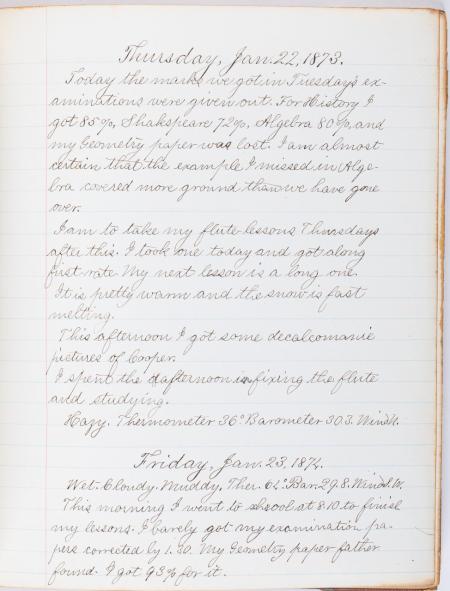 Thursday, Jan. 22, 1873.
Today the marks we got in Tuesday's ex-
aminations were given out. For History I
got 85%, Shakspeare 72%, Algebra 80%, and
my Geometry paper was lost. I am almost
certain that the example I missed in Alge-
bra covered more ground than we have gone
over.
I am to take my flute lessons Thursdays
after this. I took one today and got along
first rate. My next lesson is a long one.
It is pretty warm and the snow is fast
melting.
This afternoon I got some decalcomanie
pictures of Cooper.
I spent the afternoon in fixing the flute
and studying.
Hazy. Thermometer 36° Barometer 30.3. Wind
Friday, Jan. 23, 1874.
Wet. Cloudy. Muddy. Ther. Bar. 29.8. Wind W.
This morning I went to school at 8.10 to finish
my lessons. I barely got my examination pa-
pers corrected by 1.30. My Geometry paper father
found. I got 93% for it.